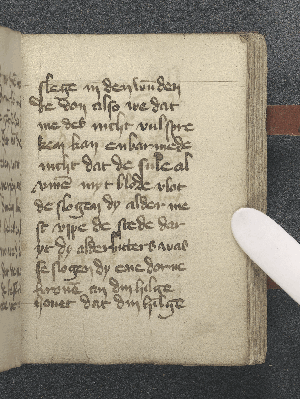 slege in den wūden
de don also we dat
me des nicht vul spre
ken kan en barmede
nicht dat de sule al
vmē myt blode vlot
de slogen dy alder me
st vppe de stede dar
yt dy alder bitters was
se slogen dy ene dorne
kronē an din hilge
houet dat din hilge